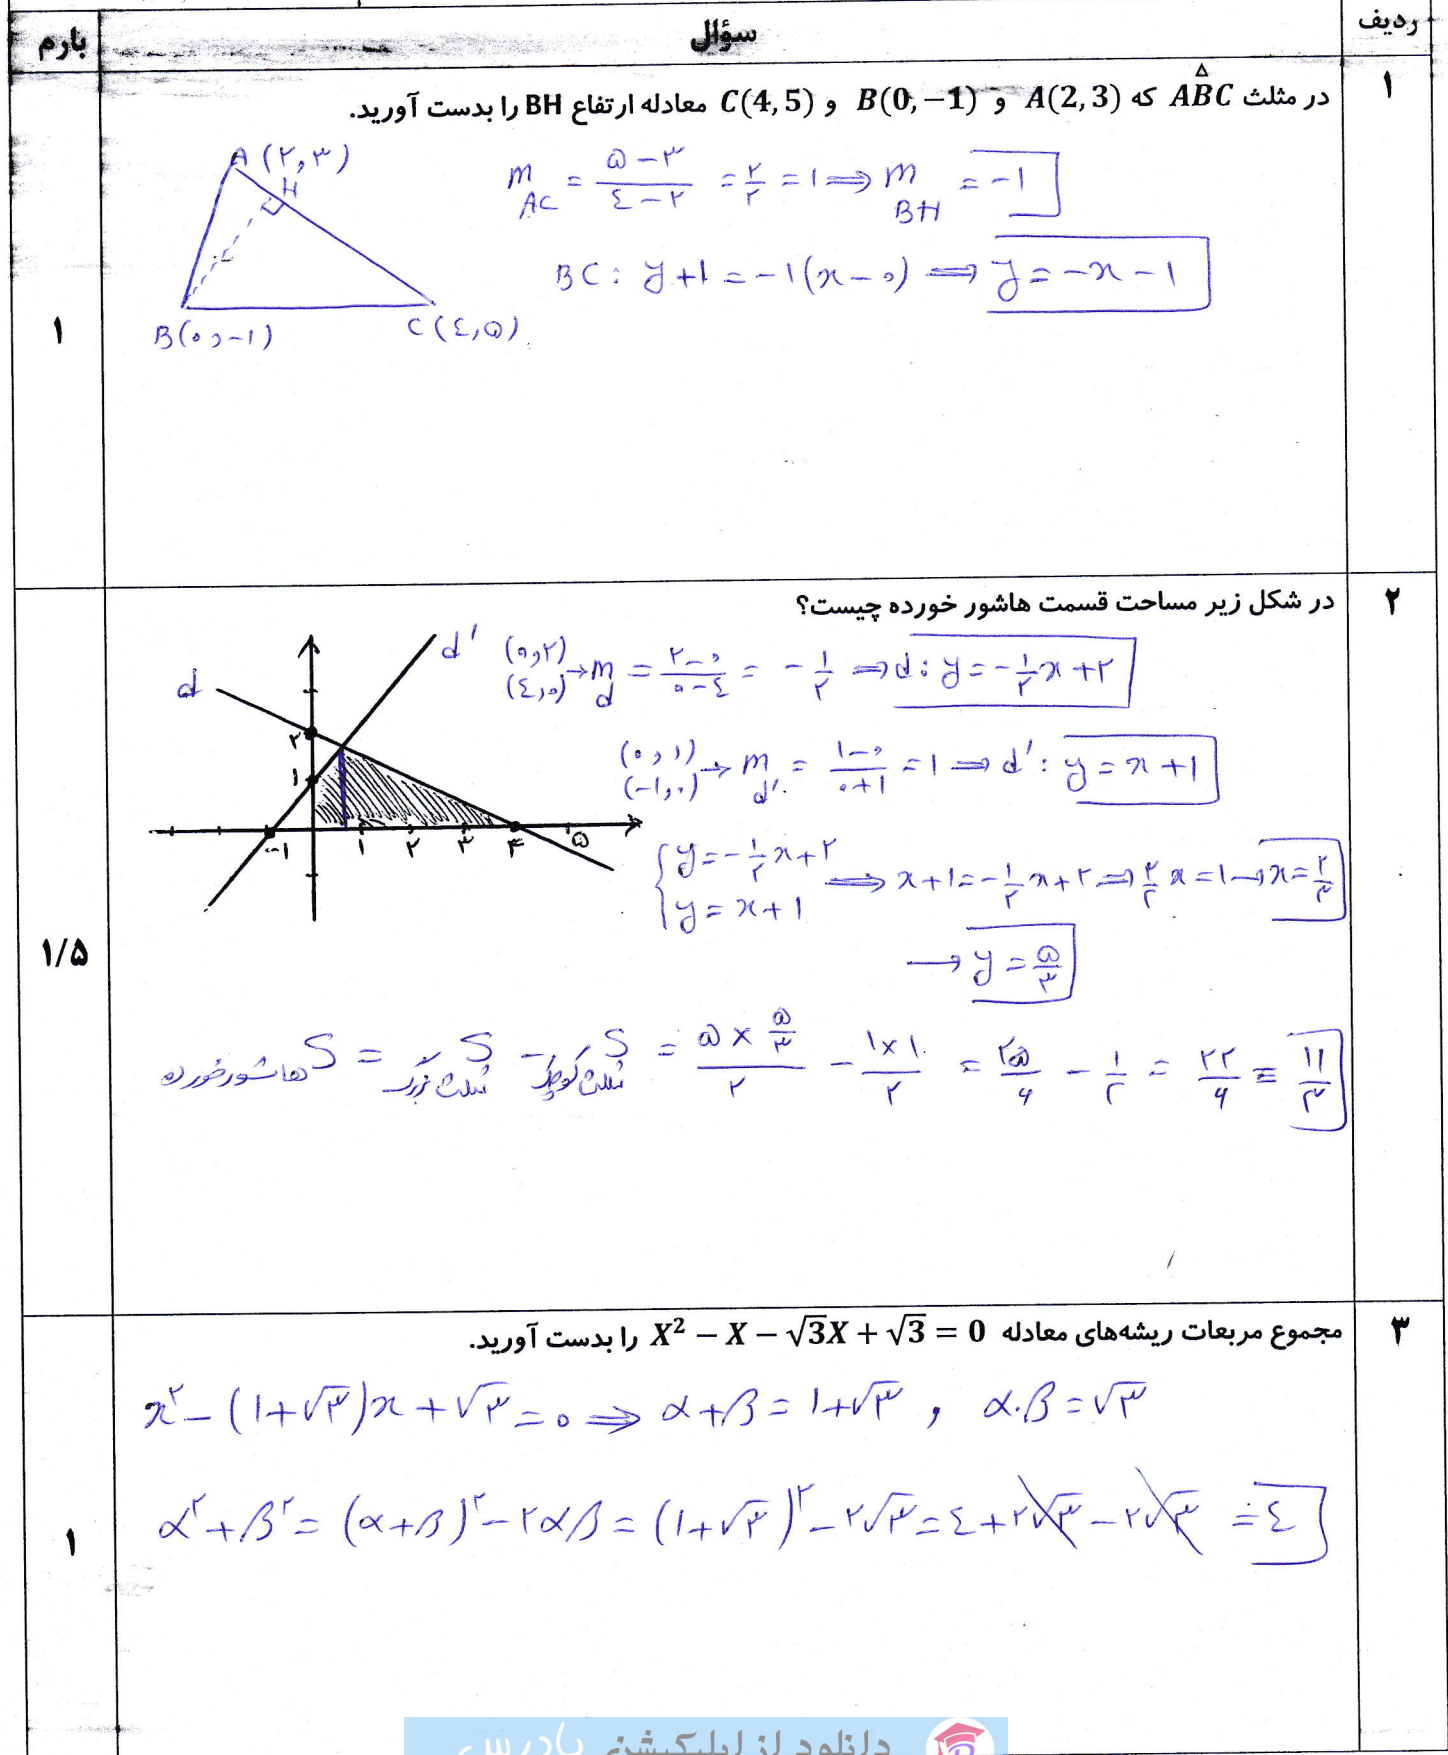 ردیف سؤال بارم
۱ در مثلث ABC که A(2,3) و B(0,−1) و C(4,5) معادله ارتفاع BH را بدست آورید.
A(۲,۳)
H
B(۰,-۱)
C(٤,۵)
m AC = ۵-۳/٤-۲ = ۲/۲ = ۱ ⟹ m BH = -۱
BC: y+۱ = -۱(x-۰) ⟹ y = -x-۱
۱
۲ در شکل زیر مساحت قسمت هاشور خورده چیست؟
d
d'
۲
۱
-۱ ۱ ۲ ۳ ۴ ۵
(۰,۲) (٤,۰) → m d = ۲-۰/۰-٤ = -۱/۲ ⟹ d: y = -۱/۲x+۲
(۰,۱) (-۱,۰) → m d' = ۱-۰/۰+۱ = ۱ ⟹ d': y = x+۱
{ y = -۱/۲x+۲ y = x+۱ ⟹ x+۱ = -۱/۲x+۲ ⟹ ۳/۲x = ۱ → x = ۲/۳
→ y = ۵/۳
S هاشورخورده = S مثلث بزرگ - S مثلث کوچک = ۵×۵/۳/۲ - ۱×۱/۲ = ۲۵/۶ - ۱/۲ = ۲۲/۶ = ۱۱/۳
۱/۵
۳ مجموع مربعات ریشه‌های معادله X² − X − √3X + √3 = 0 را بدست آورید.
x² - (۱+√۳)x + √۳ = ۰ ⟹ α+β = ۱+√۳ , α.β = √۳
α²+β² = (α+β)² - ۲αβ = (۱+√۳)² - ۲√۳ = ٤+۲√۳ - ۲√۳ = ٤
۱
دانلود از اپلیکیشن پادرس